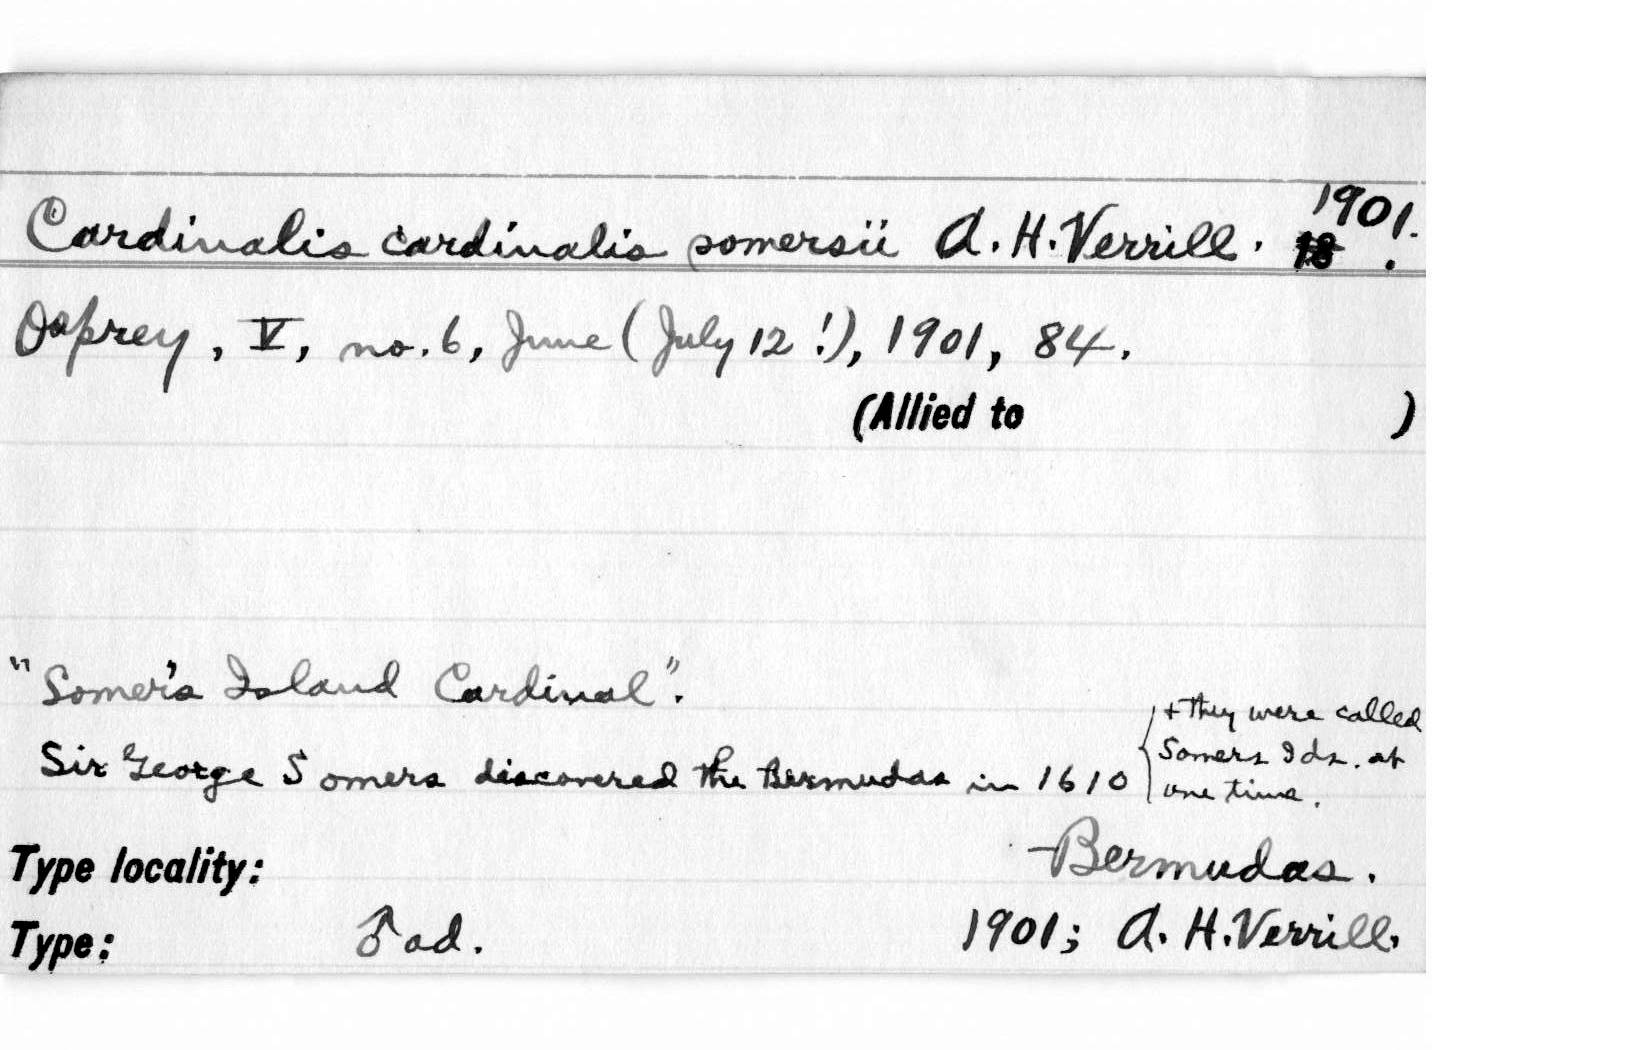 Cardinalis cardinalis somersii A. H. Verrill. 1901.
18 .
Osprey, V, no. 6, June (July 12!), 1901, 84.
(Allied to )
"Somer's Island Cardinal".
Sir George Somers discovered the Bermudas in 1610
+ they were called
Somers Ids. at
one time.
Type locality: Bermudas.
Type: ♂ ad. 1901; A. H. Verrill.